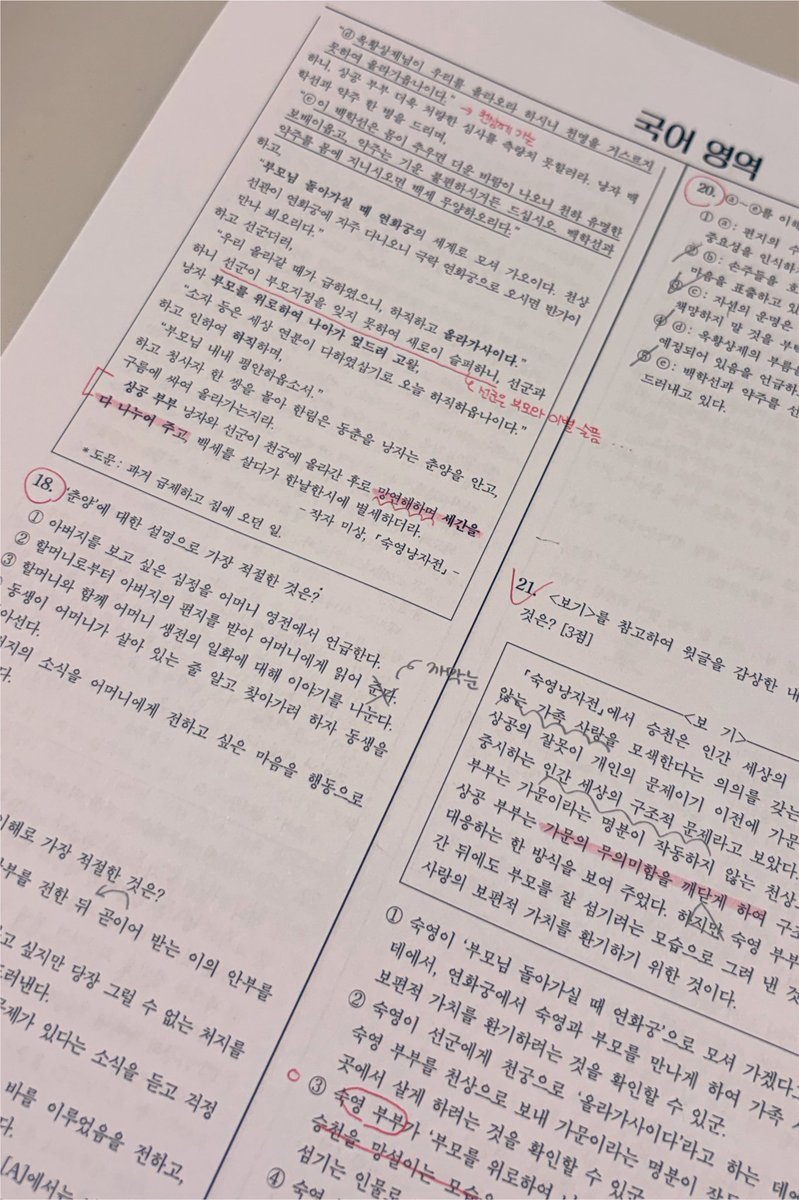 국어 영역
"ⓓ옥황상제님이 우리를 올라오라 하시니 천명을 거스르지
못하여 올라가옵나이다."
하니, 상공 부부 더욱 처량한 심사를 측량치 못할러라. 낭자 백
→ 천상에 가는
학선과 약주 한 병을 드리며,
"ⓔ이 백학선은 몸이 추우면 더운 바람이 나오니 천하 유명한
보배이옵고, 약주는 기운 불편하시거든 드십시오. 백학선과
약주를 몸에 지니시오면 백세 무양하오리다."
하고,
"부모님 돌아가실 때 연화궁의 세계로 모셔 가오이다. 천상
선관이 연화궁에 자주 다니오니 극락 연화궁으로 오시면 반가이
만나 뵈오리다."
하고 선군더러,
"우리 올라갈 때가 급하였으니, 하직하고 올라가사이다."
하니 선군이 부모지정을 잊지 못하여 새로이 슬퍼하니, 선군과
낭자 부모를 위로하여 나아가 엎드려 고왈,
선군은 부모와 이별 슬픔
"소자 등은 세상 연분이 다하였삽기로 오늘 하직하옵나이다."
하고 인하여 하직하며,
"부모님 내내 평안하옵소서."
하고 청사자 한 쌍을 몰아 한림은 동춘을 낭자는 춘양을 안고,
구름에 싸여 올라가는지라.
상공 부부 낭자와 선군이 천궁에 올라간 후로 망연해하며 세간을
다 나누어 주고, 백세를 살다가 한날한시에 별세하더라.
- 작자 미상, 「숙영낭자전」 -
*도문: 과거 급제하고 집에 오던 일.
18. '춘양'에 대한 설명으로 가장 적절한 것은?
① 아버지를 보고 싶은 심정을 어머니 영전에서 언급한다.
② 할머니로부터 아버지의 편지를 받아 어머니에게 읽어 준다.
까막눈
③ 할머니와 함께 어머니 생전의 일화에 대해 이야기를 나눈다.
동생이 어머니가 살아 있는 줄 알고 찾아가려 하자 동생을
아선다.
버지의 소식을 어머니에게 전하고 싶은 마음을 행동으로
다.
이해로 가장 적절한 것은?
안부를 전한 뒤 곧이어 받는 이의 안부를
고 싶지만 당장 그럴 수 없는 처지를
드러낸다.
문제가 있다는 소식을 듣고 걱정
바를 이루었음을 전하고,
다.
[A]에서는
20. ⓐ~ⓔ를 이해
① ⓐ: 편지의 수
중요성을 인식하
② ⓑ: 손주들을 호
마음을 표출하고 있
③ ⓒ: 자선의 운명은
책망하지 말 것을 부탁
④ ⓓ: 옥황상제의 부름을
예정되어 있음을 언급하
⑤ ⓔ: 백학선과 약주를 선
드러내고 있다.
21. <보기>를 참고하여 윗글을 감상한 내
것은? [3점]
<보 기>
「숙영낭자전」에서 승천은 인간 세상의
않는 가족 사랑을 모색한다는 의의를 갖는
상공의 잘못이 개인의 문제이기 이전에 가문
중시하는 인간 세상의 구조적 문제라고 보았다.
부부는 가문이라는 명분이 작동하지 않는 천상
상공 부부는 가문의 무의미함을 깨닫게 하여 구조
대응하는 한 방식을 보여 주었다. 하지만 숙영 부부
간 뒤에도 부모를 잘 섬기려는 모습으로 그려 낸 것
사랑의 보편적 가치를 환기하기 위한 것이다.
① 숙영이 '부모님 돌아가실 때 연화궁'으로 모셔 가겠다
데에서, 연화궁에서 숙영과 부모를 만나게 하여 가족
보편적 가치를 환기하려는 것을 확인할 수 있군.
② 숙영이 선군에게 천궁으로 '올라가사이다'라고 하는 데
숙영 부부를 천상으로 보내 가문이라는 명분이 작
곳에서 살게 하려는 것을 확인할 수 있군.
③ 숙영 부부가 '부모를 위로하여
승천을 망설이는 모습
섬기는 인물로
④ 숙영